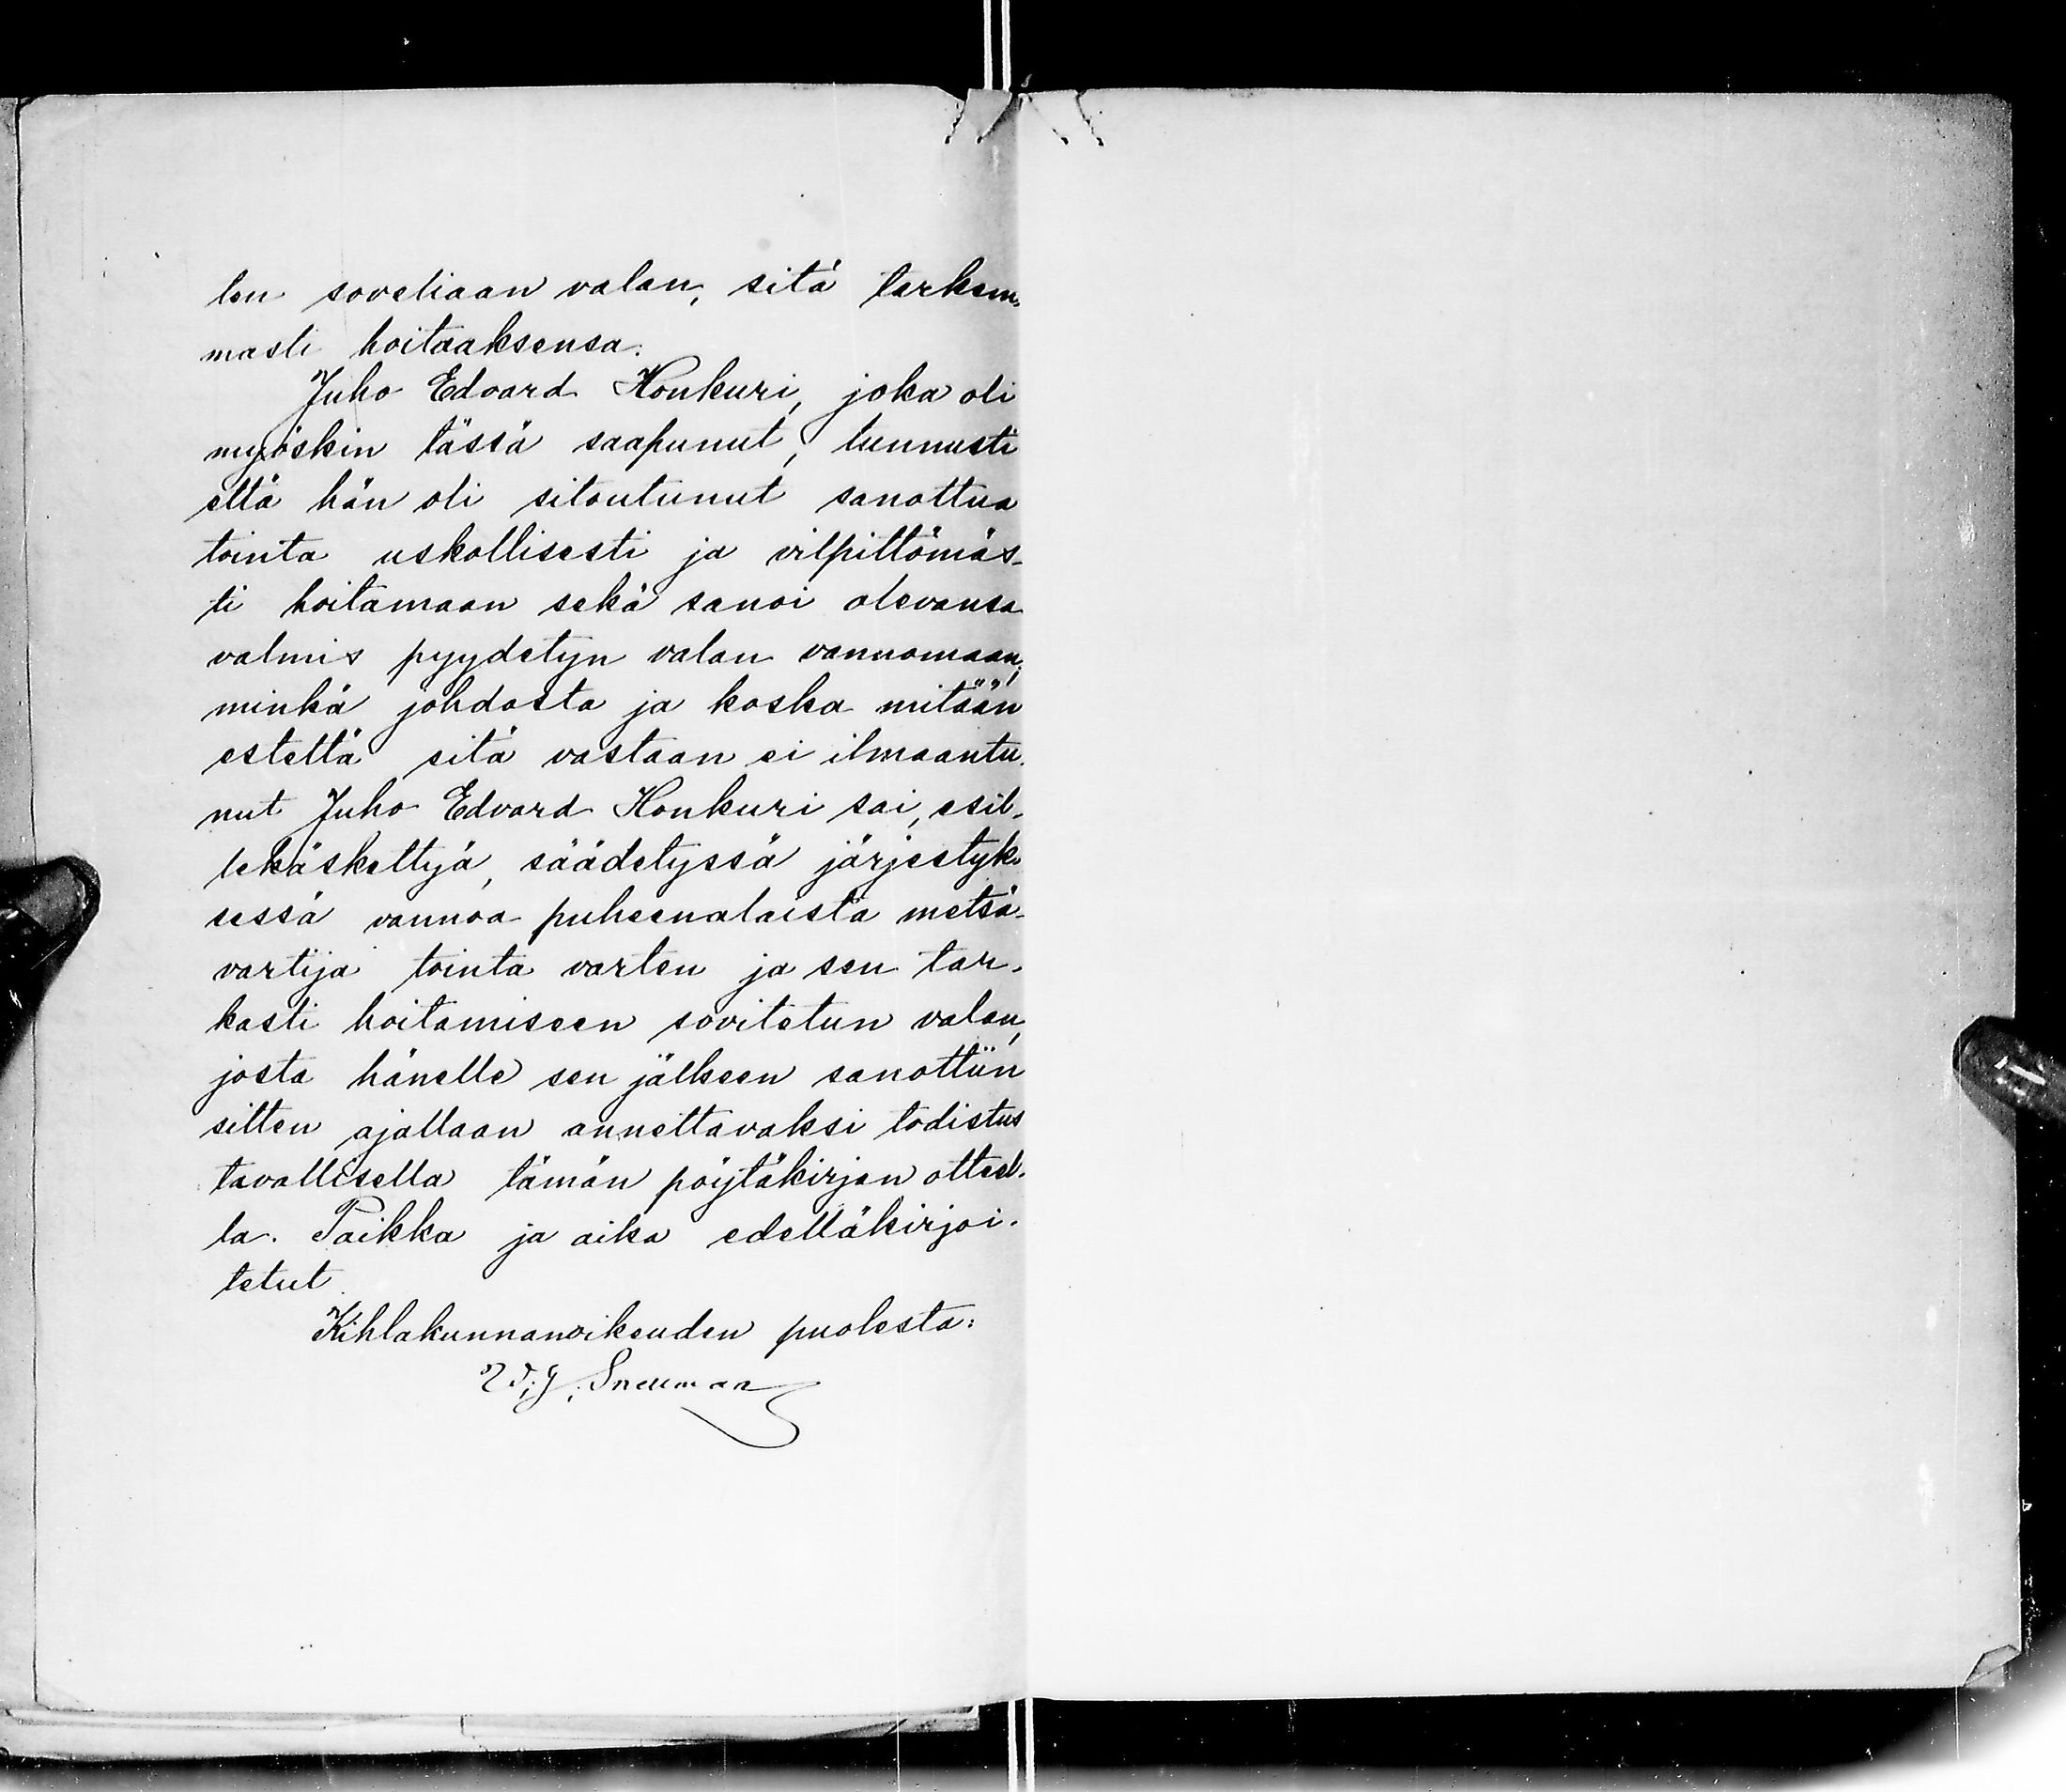 ten soveliaan valan, sitä tarkem-
masti hoitaaksensa.
Juho Edvard Honkuri, joka oli
myöskin tässä saapunut, tunnusti
että hän oli sitoutunut sanottua
tointa uskollisesti ja vilpittömäs-
ti hoitamaan sekä sanoi olevansa
valmis pyydetyn valan vannomaan,
minkä johdosta ja koska mitään
estettä sitä vastaan ei ilmaantu-
nut Juho Edvard Honkuri sai, esil-
lekäskettyä, säädetyssä järjestyk-
sessä vannoa puheenalaista metsä-
vartija tointa varten ja sen tar-
kasti hoitamiseen sovitetun valan,
josta hänelle sen jälkeen sanottiin
sitten ajallaan annettavaksi todistus
tavallisella tämän pöytäkirjan otteel-
la. Paikka ja aika edelläkirjoi-
tetut.
Kihlakunnanoikeuden puolesta:
W. J. Snellman